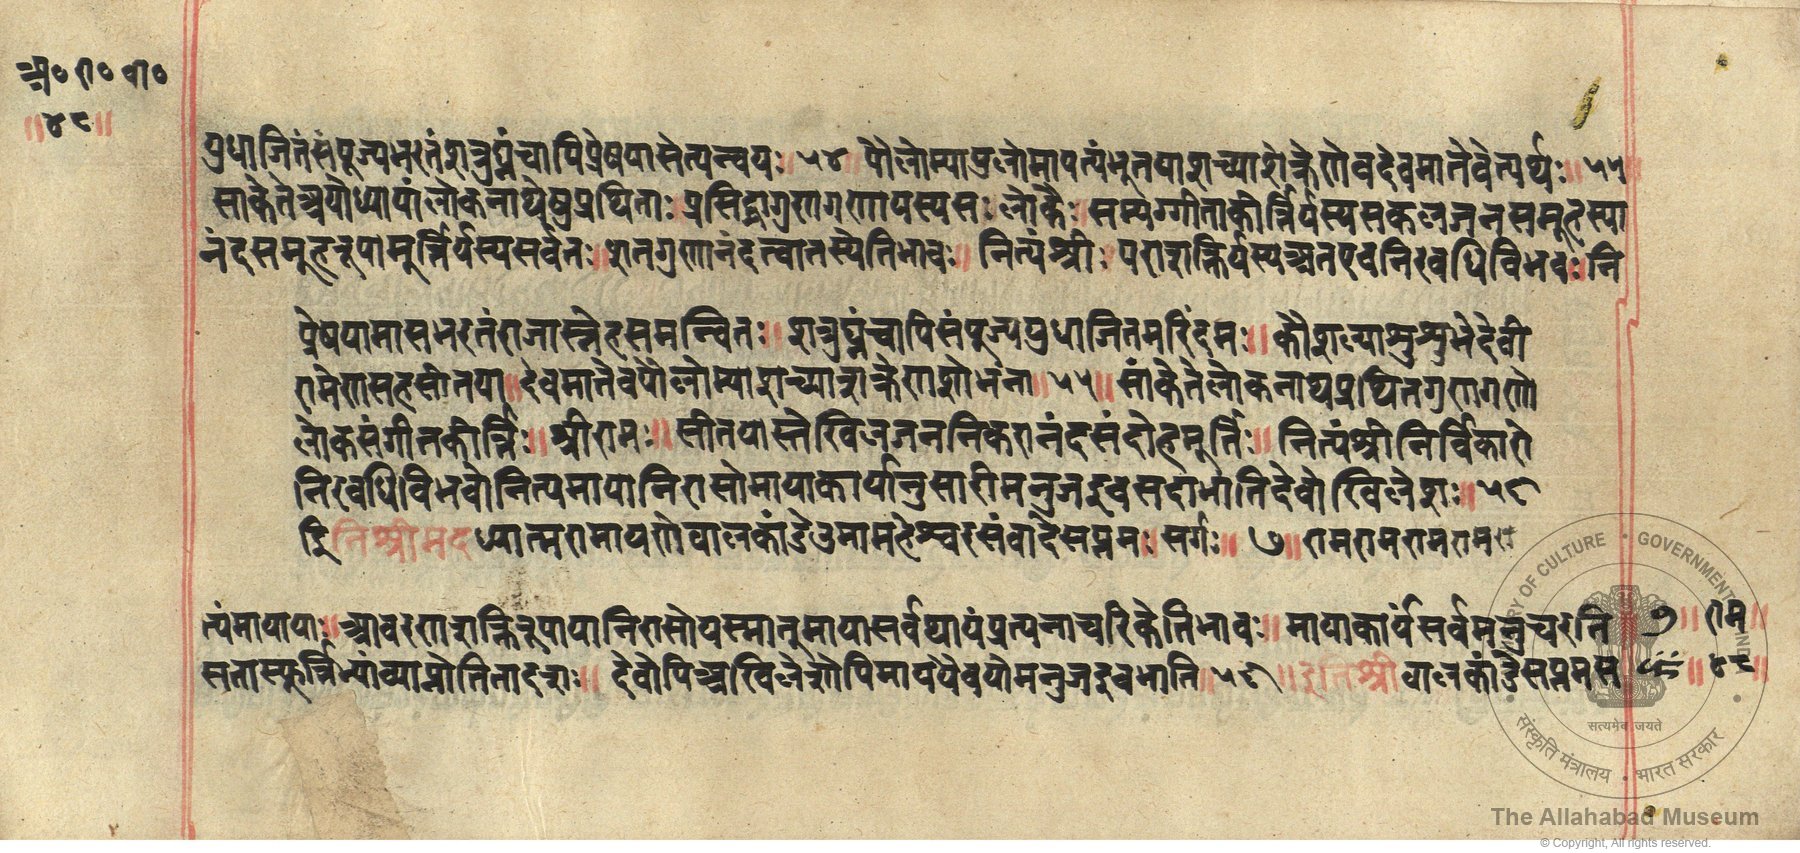 अ० रा० वा०
॥४९॥
युधाजितंसंपूज्यभरतंशत्रुघ्नंचापिप्रेषयासेत्यन्वयः॥५४॥पौलोम्यापुलोमापत्यंभूतयाशच्याशक्रेणेवदेवमातेवेत्यर्थः॥५५॥
साकेतेअयोध्यायांलोकनाथेषुप्रथिताःप्रसिद्धागुणागणायस्यसःलोकैःसम्यग्गीताकीर्त्तिर्यस्यसकलजनसमूहस्या
नंदसमूहरूपामूर्त्तिर्यस्यसर्वतः॥शतगुणानंदत्वात्तस्येतिभावः॥नित्यंश्रीःपराशक्तिर्यस्यअतएवनिरवधिविभवः॥नि
प्रेषयामासभरतंराजास्नेहसमन्वितः॥शत्रुघ्नंचापिसंपूज्ययुधाजितमरिंदमः॥कौशल्याशुशुभेदेवी
रामेणसहसीतया॥देवमातेवपौलोम्याशच्याशक्रेणशोभना॥५५॥साकेतेलोकनाथप्रथितगुणगणो
लोकसंगीतकीर्त्तिः॥श्रीरामः॥सीतयास्तेखिलजननिकरानंदसंदोहमूर्तिः॥नित्यंश्रीनिर्विकारो
निरवधिविभवोनित्यमायानिरासोमायाकार्यानुसारीमनुजइवसदाभातिदेवोखिलेशः॥५६
इतिश्रीमदध्यात्मरामायणेवालकांडेउमामहेश्वरसंवादेसप्तमः सर्गः॥७॥रामरामरामराम
त्यंमायायाः॥आवरणशक्तिरूपायानिरासोयस्मात्तुमायासर्वथायंप्रत्यनाच्चरिकेतिभावः॥मायाकार्यंसर्वमनुचरति ७॥राम॥
सत्तास्फूर्त्तिभ्यांव्याप्नोतितादृशः॥देवोपिअखिलेशोपिमायथैवयोमनुजइवभाति॥५६॥इतिश्रीवालकांडेसप्तमस र्गः॥४९॥
MINISTRY OF CULTURE • GOVERNMENT OF INDIA
सत्यमेव जयते
संस्कृति मंत्रालय • भारत सरकार
The Allahabad Museum
© Copyright, All rights reserved.